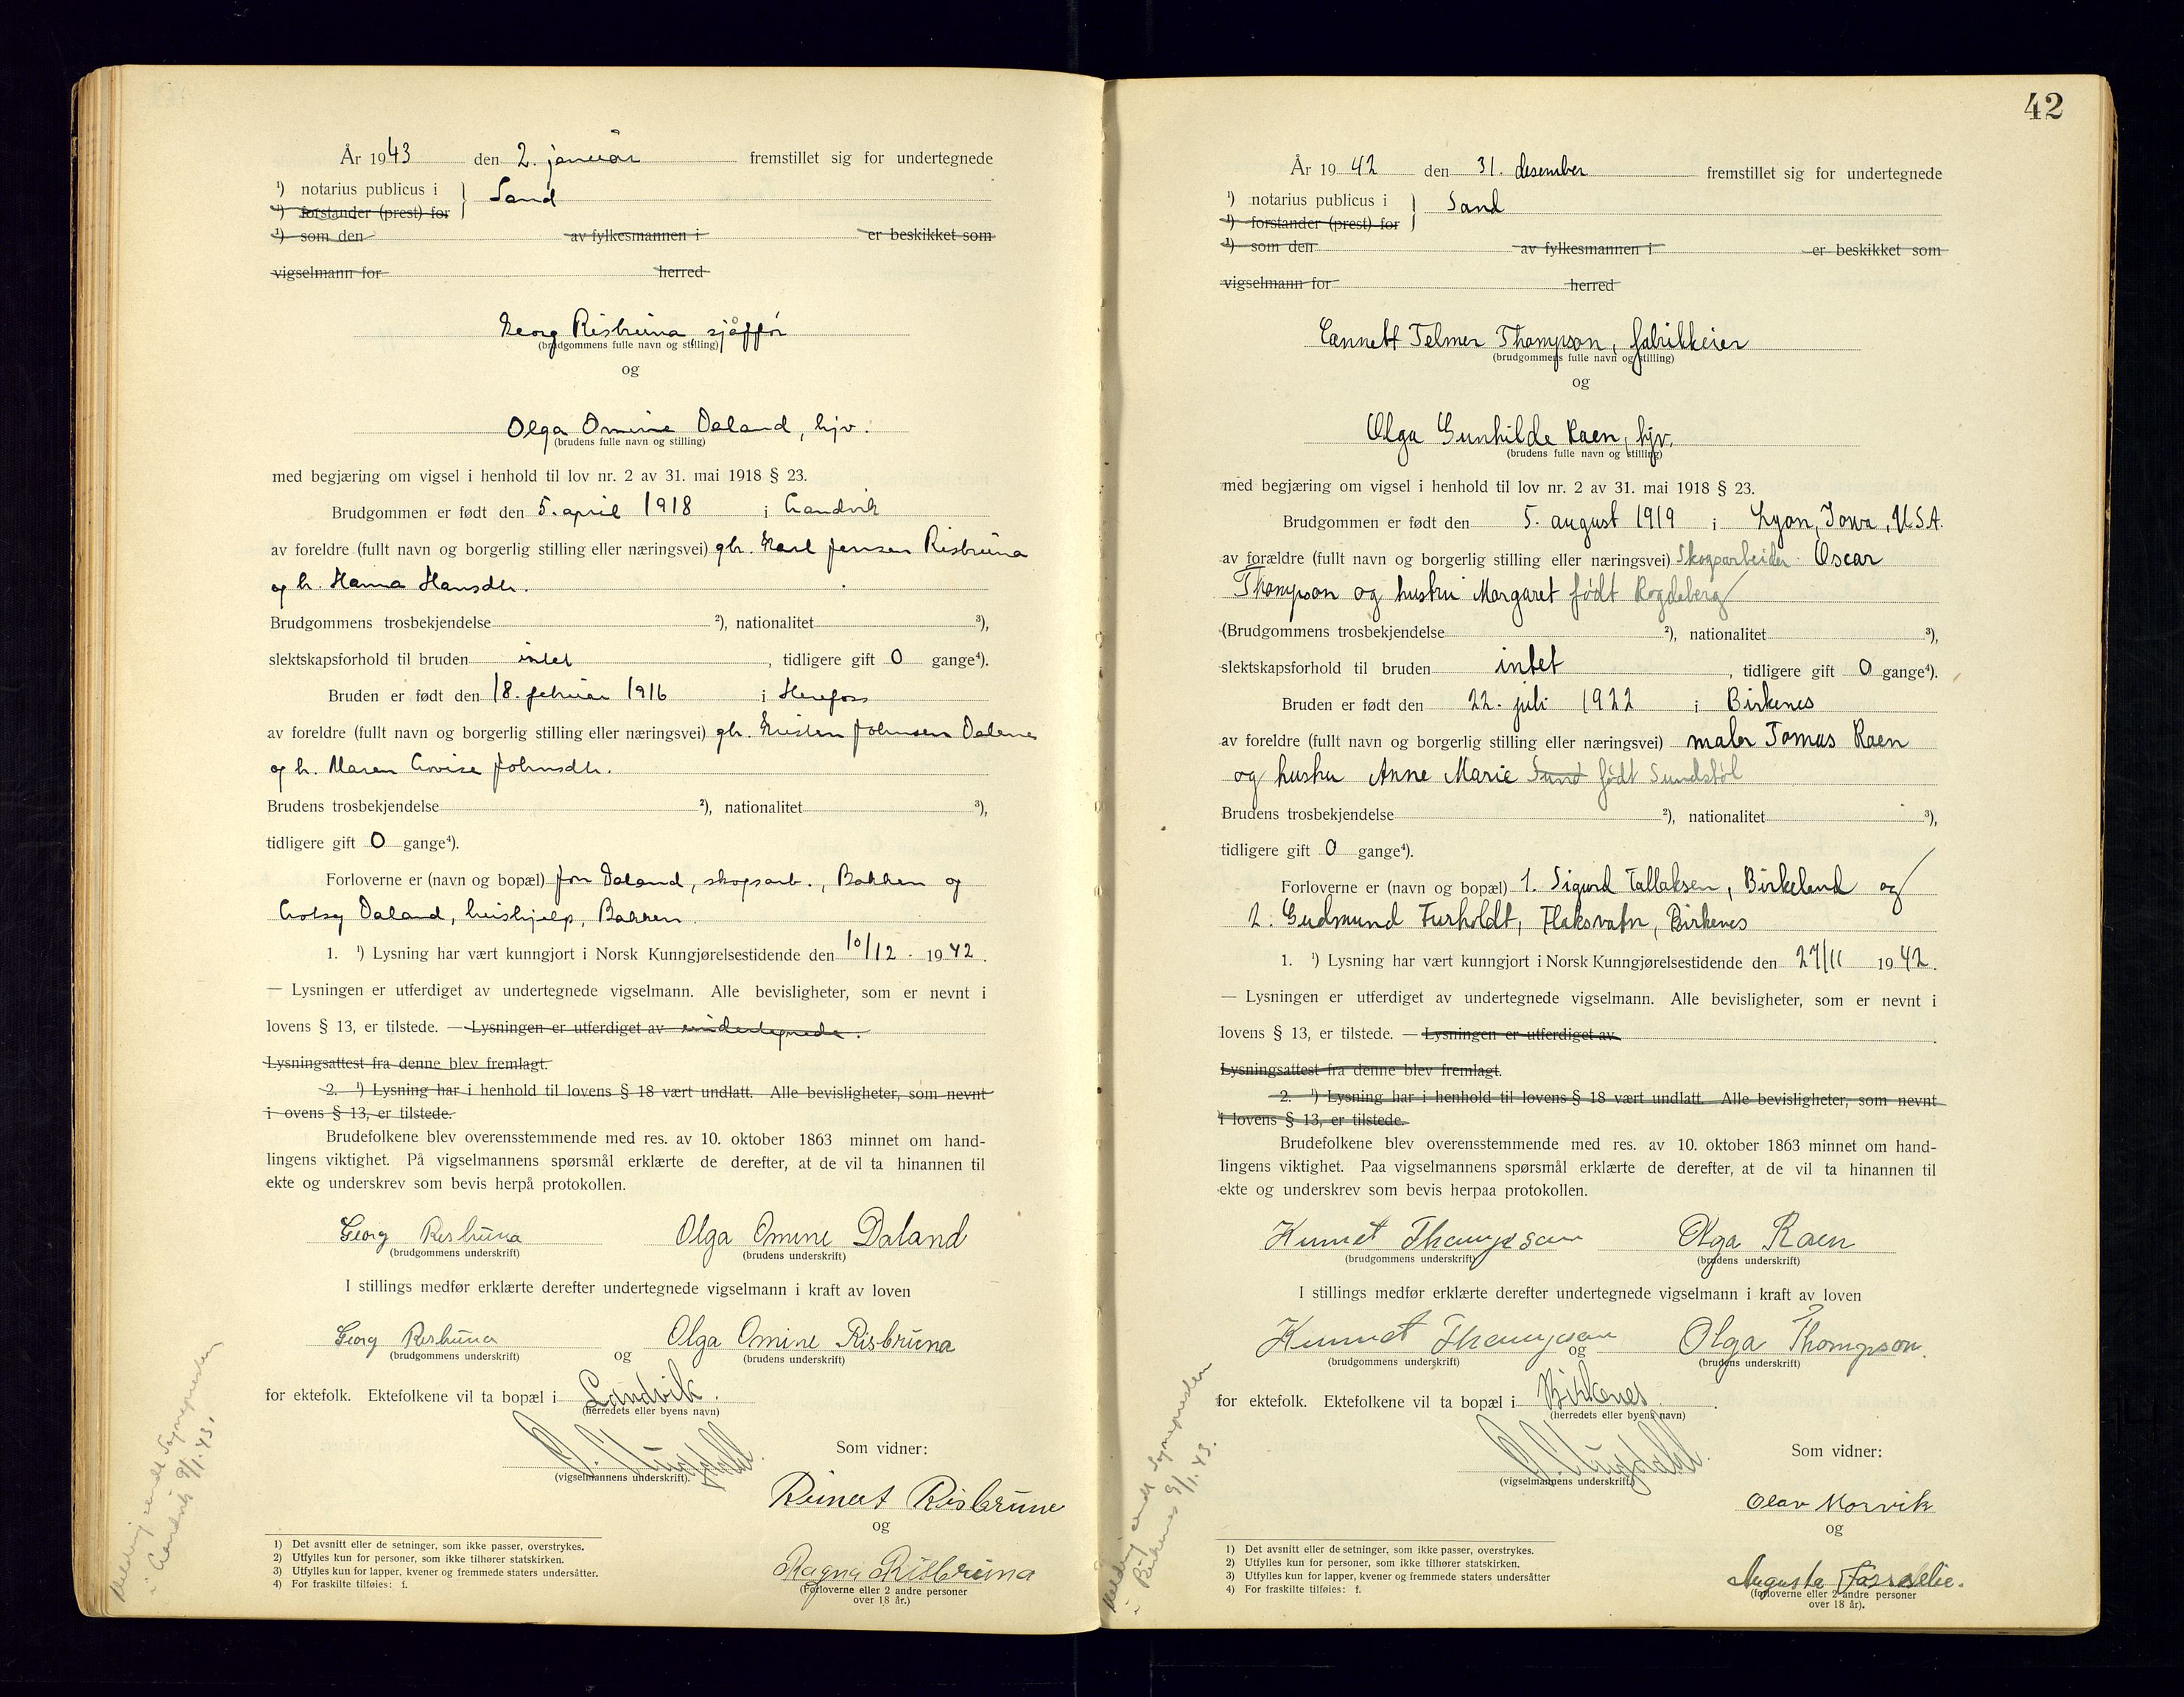 År 1943 den 2. januar fremstillet sig for undertegnede
¹) notarius publicus i } Sand
¹) forstander (prest) for
¹) som den av fylkesmannen i er beskikket som
vigselmann for herred
Georg Risbruna sjåffør
(brudgommens fulle navn og stilling)
og
Olga Omine Daland, hjv.
(brudens fulle navn og stilling)
med begjæring om vigsel i henhold til lov nr. 2 av 31. mai 1918 § 23.
Brudgommen er født den 5. april 1918 i Landvik
av foreldre (fullt navn og borgerlig stilling eller næringsvei) gbr. Karl Jensen Risbruna
og h. Hanna Hansdtr.
Brudgommens trosbekjendelse ²), nationalitet ³),
slektskapsforhold til bruden intet, tidligere gift 0 gange⁴).
Bruden er født den 18. februar 1916 i Herefoss
av foreldre (fullt navn og borgerlig stilling eller næringsvei) gbr. Kristen Johnsen Dalene
og h. Maren Lovise Johnsdtr.
Brudens trosbekjendelse ²), nationalitet ³),
tidligere gift 0 gange⁴).
Forloverne er (navn og bopæl) Jon Daland, skogsarb., Bakken og
Daland, hushjelp, Bakken.
1. ¹) Lysning har vært kunngjort i Norsk Kunngjørelsestidende den 10/12. 1942.
— Lysningen er utferdiget av undertegnede vigselmann. Alle bevisligheter, som er nevnt i
lovens § 13, er tilstede. — Lysningen er utferdiget av undertegnede.
Lysningsattest fra denne blev fremlagt.
2. ¹) Lysning har i henhold til lovens § 18 vært undlatt. Alle bevisligheter, som nevnt
i ovens § 13, er tilstede.
Brudefolkene blev overensstemmende med res. av 10. oktober 1863 minnet om hand-
lingens viktighet. På vigselmannens spørsmål erklærte de derefter, at de vil ta hinannen til
ekte og underskrev som bevis herpå protokollen.
Georg Risbruna Olga Omine Daland
(brudgommens underskrift) (brudens underskrift)
I stillings medfør erklærte derefter undertegnede vigselmann i kraft av loven
Georg Risbruna og Olga Omine Risbruna
(brudgommens underskrift) (brudens underskrift)
for ektefolk. Ektefolkene vil ta bopæl i Landvik.
(herredets eller byens navn)
Som vidner:
(vigselmannens underskrift).
Reinert Risbrune
og
Ragna Risbruna
(Forloverne eller 2 andre personer
over 18 år.)
1) Det avsnitt eller de setninger, som ikke passer, overstrykes.
2) Utfylles kun for personer, som ikke tilhører statskirken.
3) Utfylles kun for lapper, kvener og fremmede staters undersåtter.
4) For fraskilte tilføies: f.
Melding sendt Sognepresten
i Landvik 9/1.43.
42
År 1942 den 31. desember fremstillet sig for undertegnede
¹) notarius publicus i } Sand
¹) forstander (prest) for
¹) som den av fylkesmannen i er beskikket som
vigselmann for herred
Cennett Telmer Thompson, fabrikkeier
(brudgommens fulle navn og stilling)
og
Olga Gunhilde Raen, hjv.
(brudens fulle navn og stilling)
med begjæring om vigsel i henhold til lov nr. 2 av 31. mai 1918 § 23.
Brudgommen er født den 5. august 1919 i Lyon, Iowa, U.S.A.
av forældre (fullt navn og borgerlig stilling eller næringsvei) Skogsarbeider Oscar
Thompson og hustru Margaret født Rogdeberg
(Brudgommens trosbekjendelse ²), nationalitet ³),
slektskapsforhold til bruden intet, tidligere gift 0 gange⁴).
Bruden er født den 22. juli 1922 i Birkenes
av foreldre (fullt navn og borgerlig stilling eller næringsvei) maler Tomas Raen
og hustru Anne Marie Sund født Sundstøl
Brudens trosbekjendelse ²), nationalitet ³),
tidligere gift 0 gange⁴).
Forloverne er (navn og bopæl) 1. Sigurd Tallaksen, Birkeland og
2. Gudmund Furholdt, Flaksvatn, Birkenes
1. ¹) Lysning har vært kunngjort i Norsk Kunngjørelsestidende den 27/11 1942.
— Lysningen er utferdiget av undertegnede vigselmann. Alle bevisligheter, som er nevnt i
lovens § 13, er tilstede. — Lysningen er utferdiget av
Lysningsattest fra denne blev fremlagt.
2. ¹) Lysning har i henhold til lovens § 18 vært undlatt. Alle bevisligheter, som nevnt
i lovens § 13, er tilstede.
Brudefolkene blev overensstemmende med res. av 10. oktober 1863 minnet om hand-
lingens viktighet. Paa vigselmannens spørsmål erklærte de derefter, at de vil ta hinannen til
ekte og underskrev som bevis herpaa protokollen.
Kennet Thompson Olga Raen
(brudgommens underskrift) (brudens underskrift)
I stillings medfør erklærte derefter undertegnede vigselmann i kraft av loven
Kennet Thompson og Olga Thompson.
(brudgommens underskrift) (brudens underskrift)
for ektefolk. Ektefolkene vil ta bopæl i Birkenes.
(herredets eller byens navn)
Som vidner:
(vigselmannens underskrift)
Olav Morvik
og
Augusta
(forloverne eller 2 andre personer
over 18 år).
1) Det avsnitt eller de setninger, som ikke passer, overstrykes.
2) Utfylles kun for personer, som ikke tilhører statskirken.
3) Utfylles kun for lapper, kvener og fremmede staters undersåtter
4) For fraskilte tilføies: f.
Melding sendt Sognepresten
i Birkenes 9/1.43.